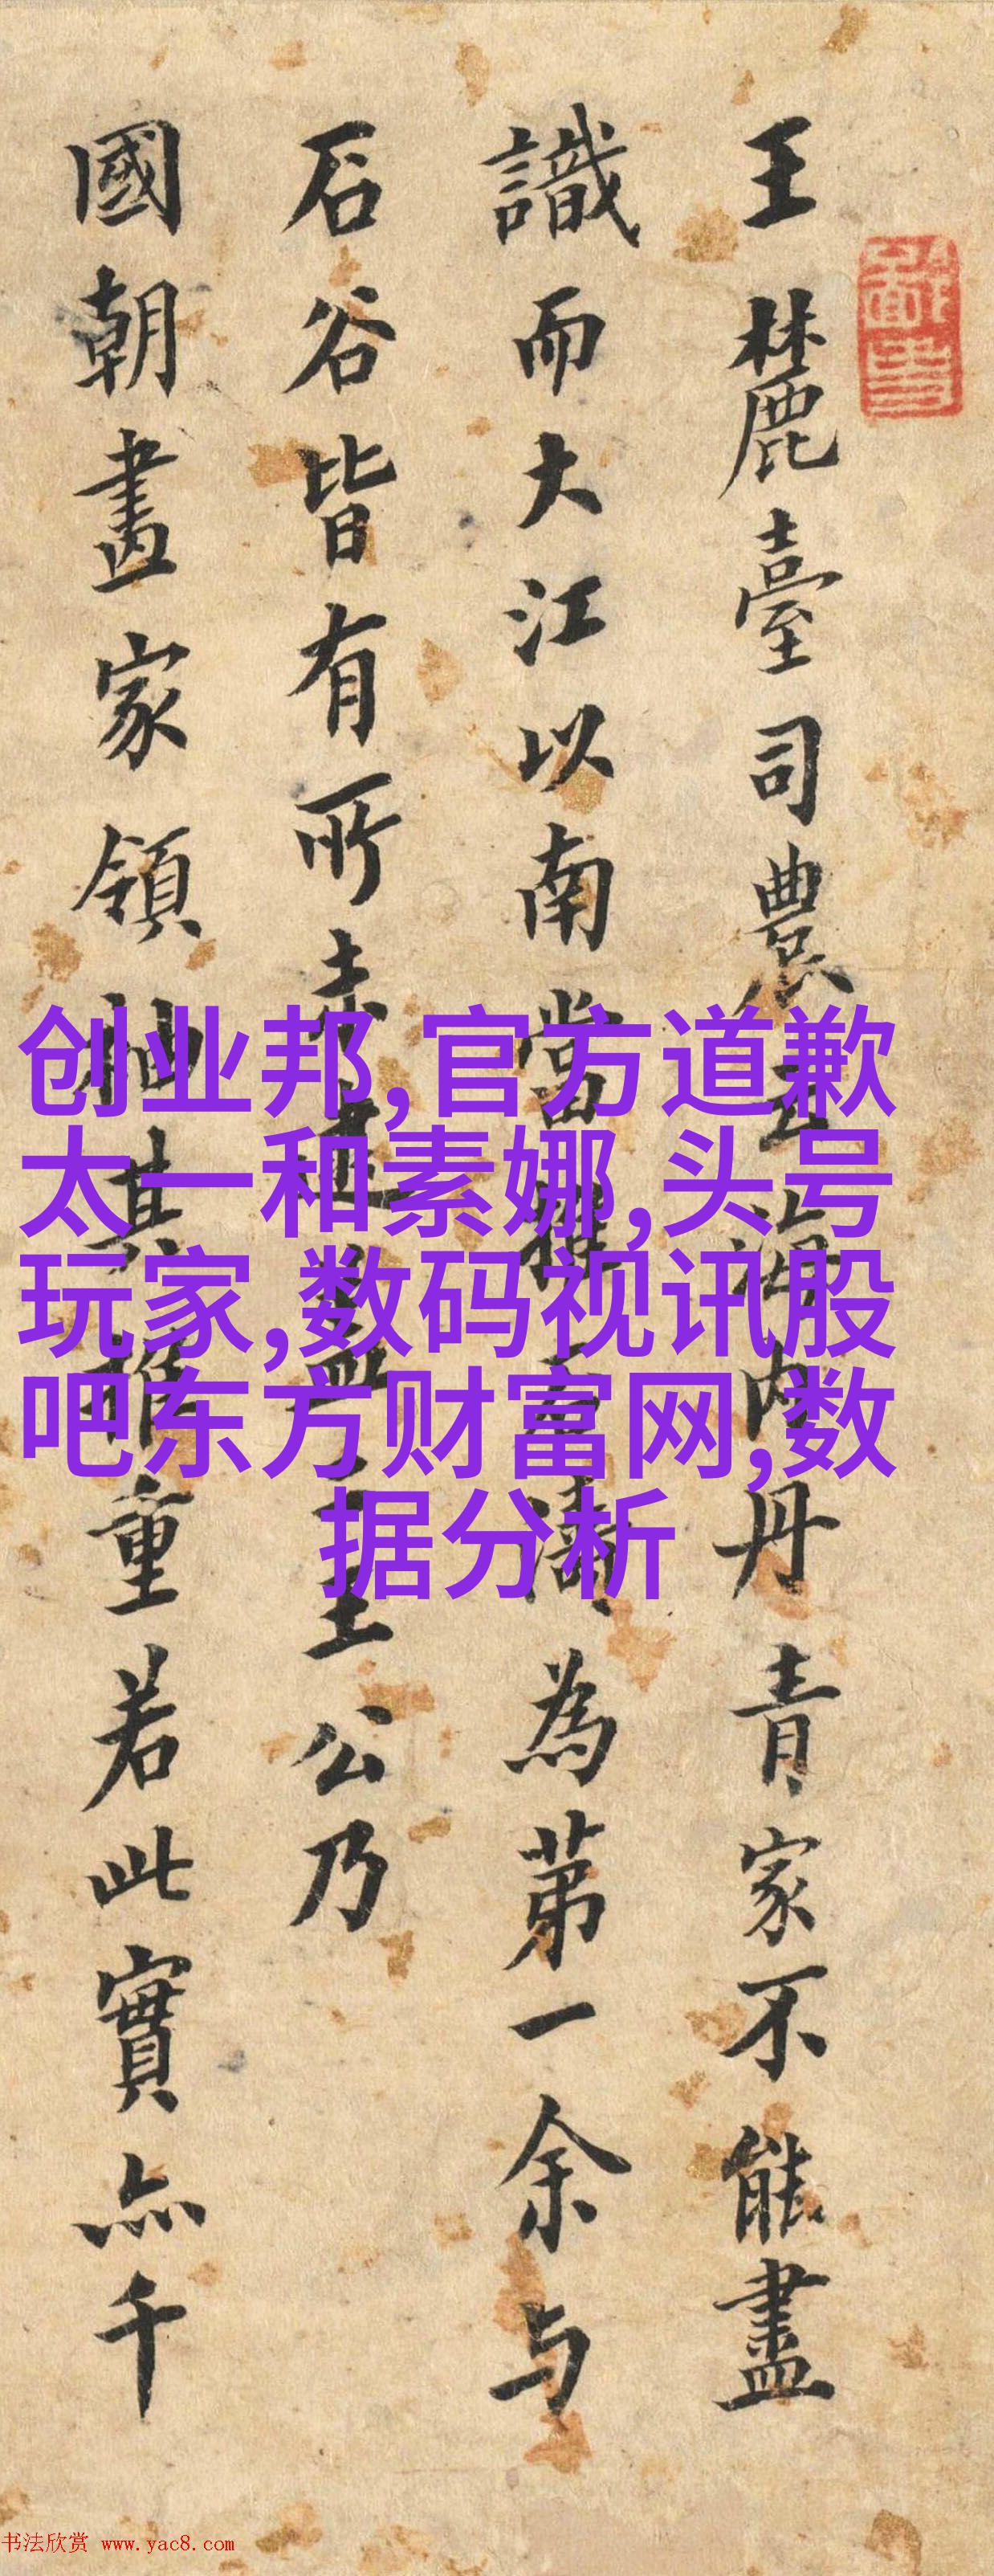 王麓臺司農云海内丹青家不能盡
識而大江以南當推石濤為第一余与
石谷皆有所未逮盖王公乃
國朝畫家領袖其推重若此實亦千
创业邦,官方道歉
太一和素娜,头号
玩家,数码视讯股
吧东方财富网,数
据分析
书法欣赏 www.yac8.com